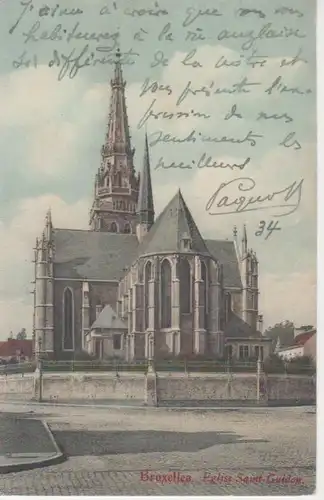 J'aime à croire que vous
habiterez à la rue anglaise
si différente de la vôtre et
vous présente l'ex-
pression de nos
sentiments les
meilleurs
Paquot
34
Bruxelles Eglise Saint-Guidon.